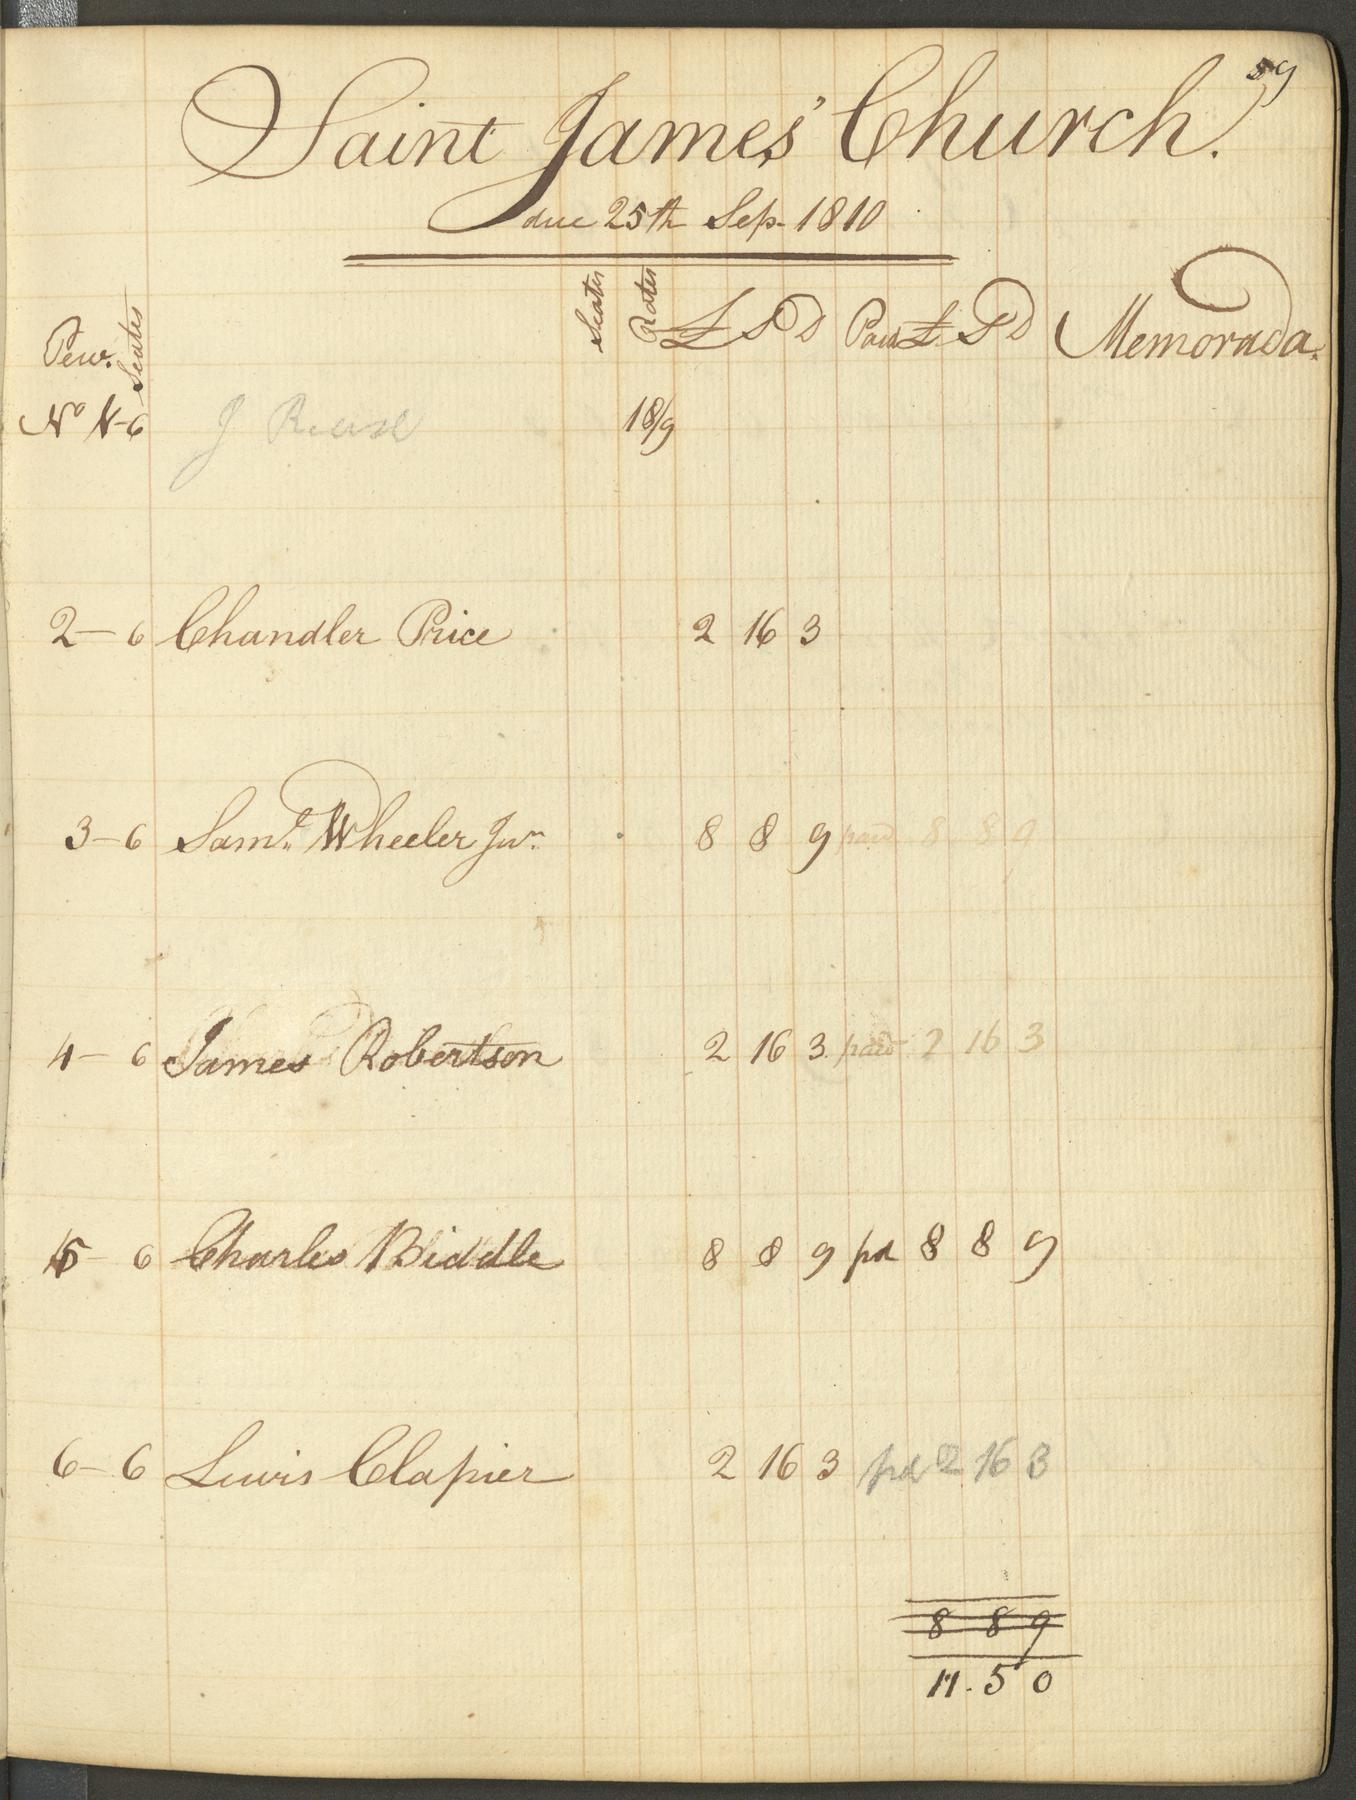 59
Saint James' Church.
due 25th Sep. 1810
Pew. Seates Seates Rates £ S D Paid £ S D Memorada.
No 1-6 J 18/9
2-6 Chandler Price 2 16 3
3-6 Saml. Wheeler Junr. 8 8 9 paid 8 8 9
4-6 James Robertson 2 16 3 paid 2 16 3
5-6 Charles Biddle 8 8 9 pd 8 8 9
6-6 Lewis Clapier 2 16 3 pd 2 16 3
8 8 9
11.5 0